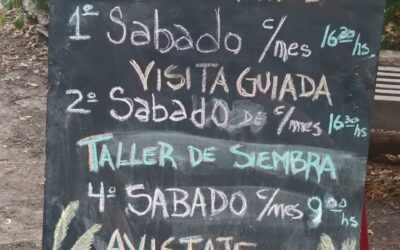 1º Sabado c/mes 16:30 hs
VISITA GUIADA
2º Sabado DE c/mes 16:30 hs
TALLER DE SIEMBRA
4º SABADO c/mes 9:00 hs
AVISTAJE